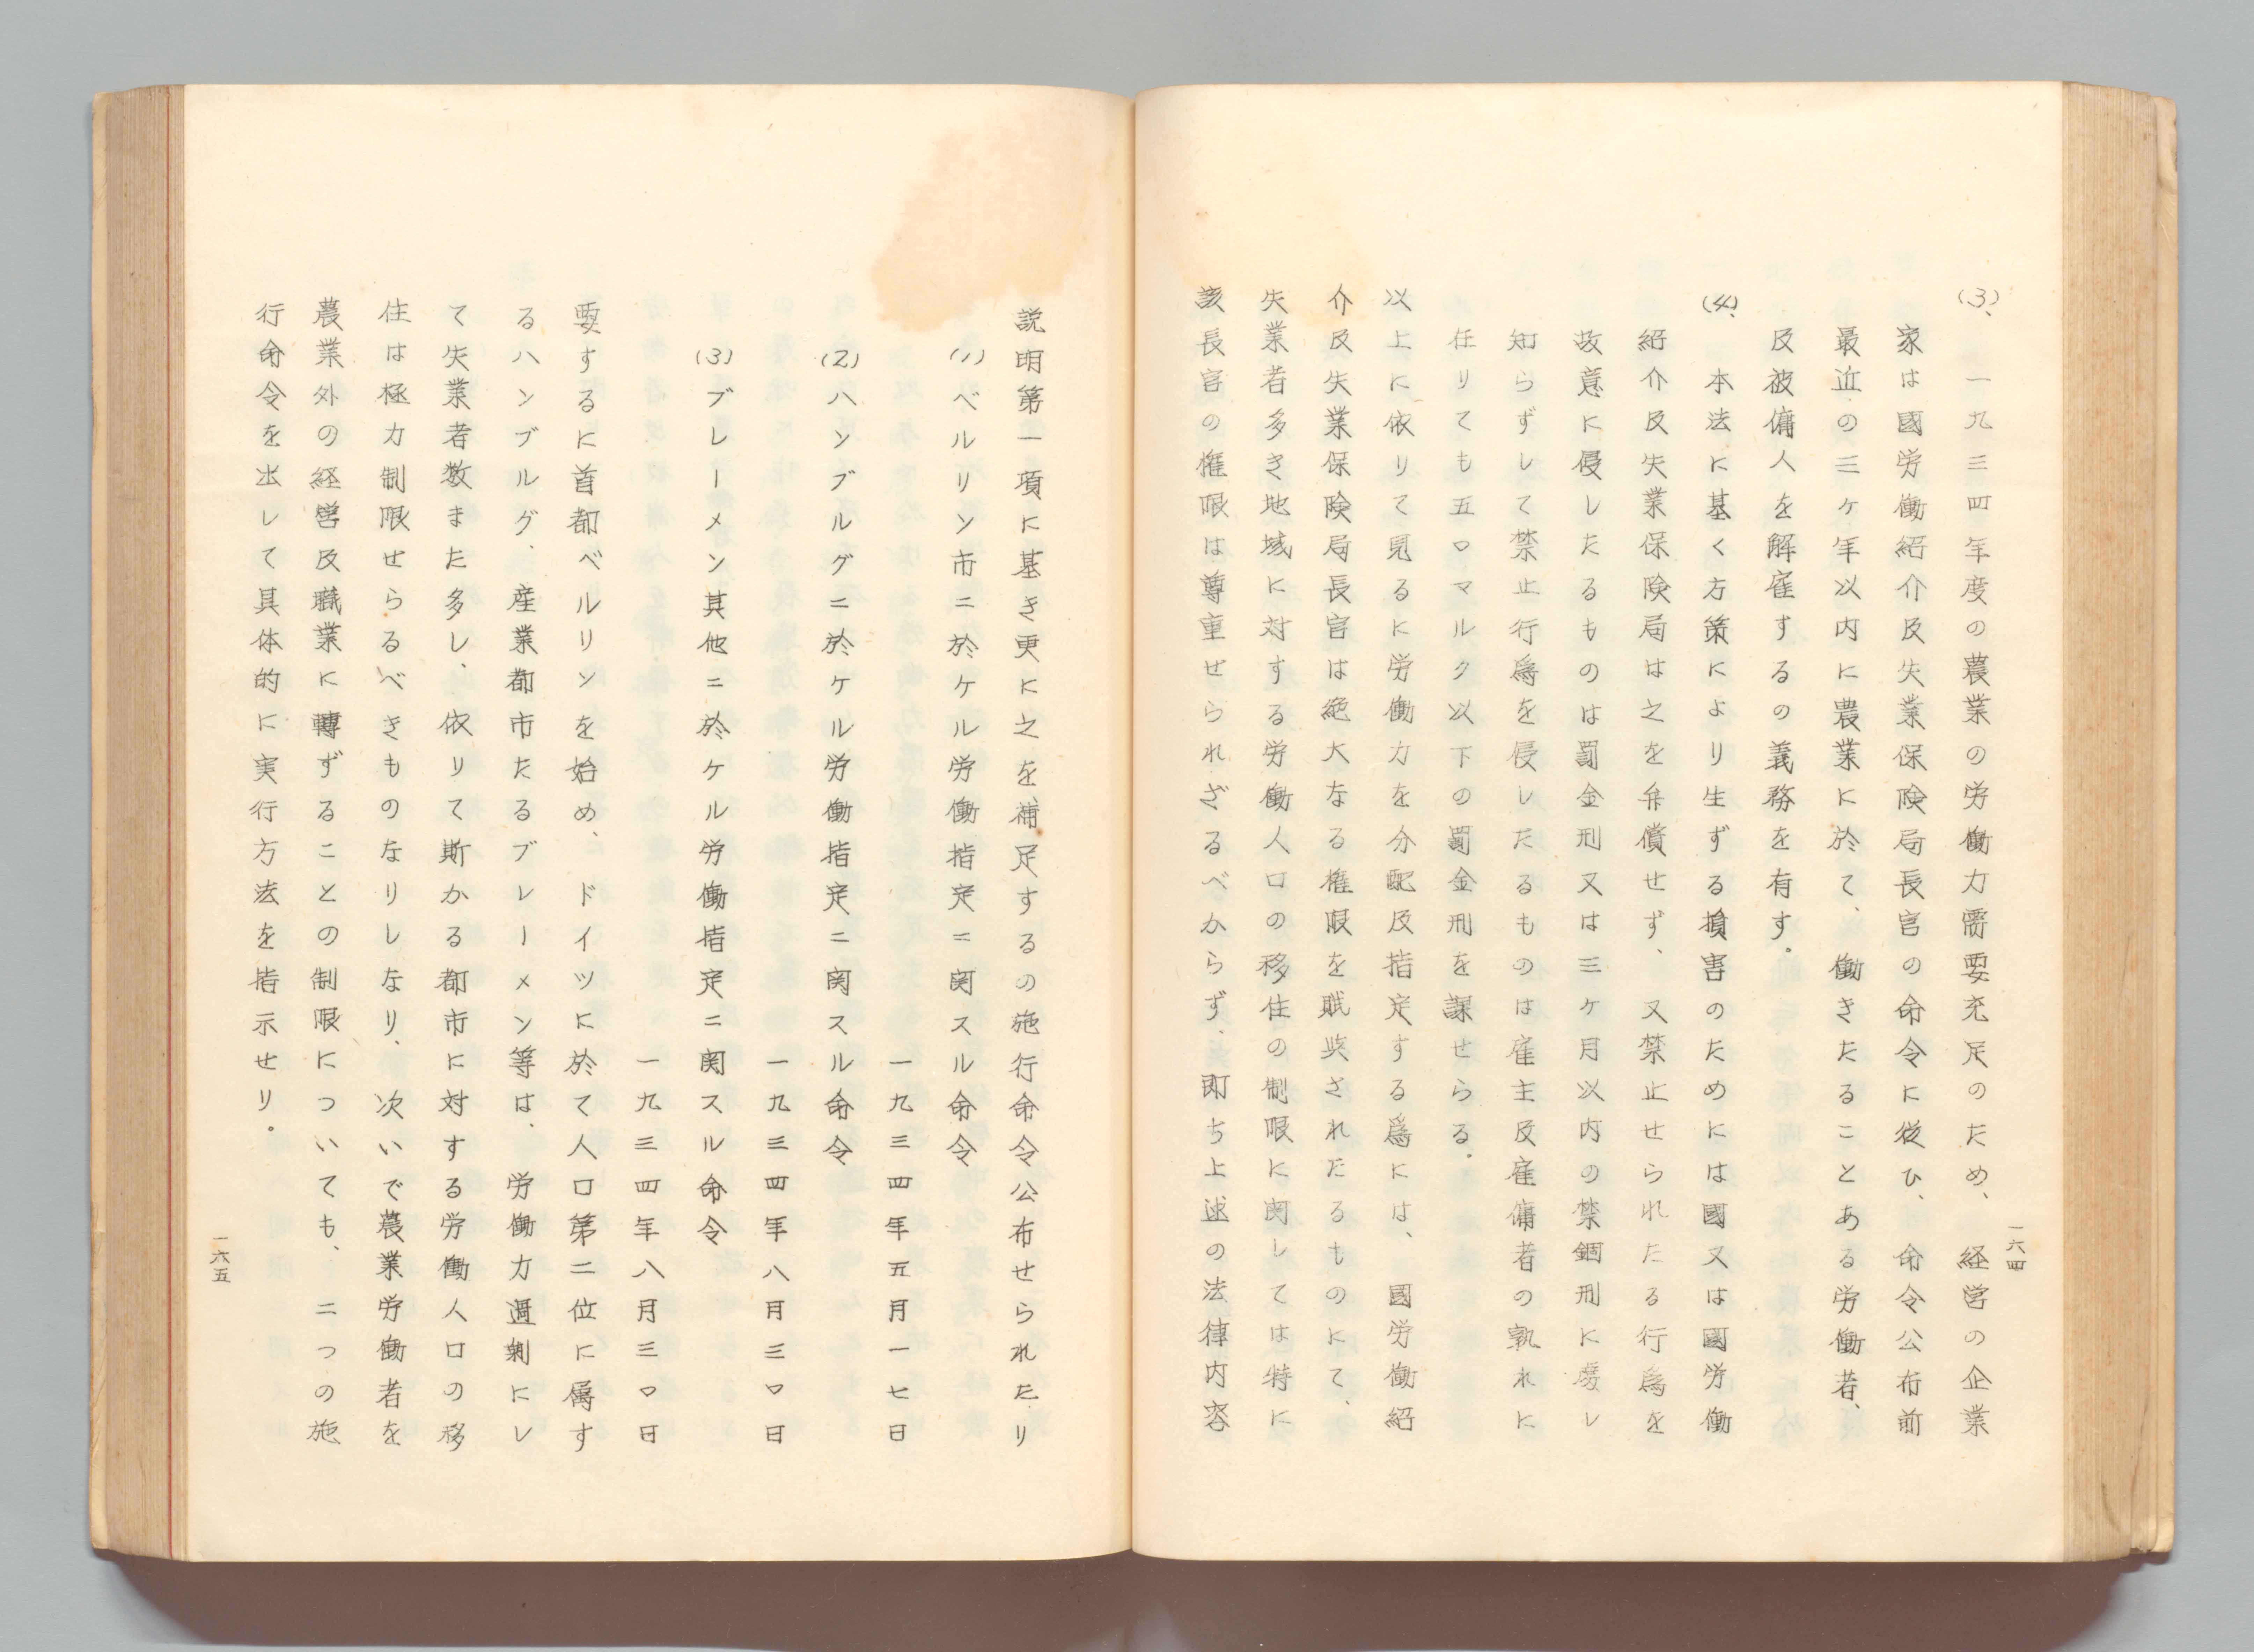 一六四
(3)、一九三四年度の農業の労働力需要充足のため、経営の企業
家は國労働紹介及失業保険局長官の命令に從ひ、命令公布前
最近の三ヶ年以内に農業に於て、働きたることある労働者、
及被傭人を解雇するの義務を有す。
(4)、本法に基く方策により生ずる損害のためには國又は國労働
紹介及失業保険局は之を弁償せず、又禁止せられたる行爲を
故意に侵したるものは罰金刑又は三ヶ月以内の禁錮刑に處し
知らずして禁止行爲を侵したるものは雇主及雇傭者の孰れに
在りても五〇マルク以下の罰金刑を課せらる。
以上に依りて見るに労働力を分配及指定する爲には、國労働紹
介及失業保険局長官は絶大なる権限を賦與されたるものにて、
失業者多き地域に対する労働人口の移住の制限に関しては特に
該長官の権限は尊重せられざるべからず、即ち上述の法律内容
説明第一項に基き更に之を補足するの施行命令公布せられたり
(1)ベルリン市ニ於ケル労働指定ニ関スル命令
一九三四年五月一七日
(2)ハンブルグニ於ケル労働指定ニ関スル命令
一九三四年八月三〇日
(3)ブレーメン其他ニ於ケル労働指定ニ関スル命令
一九三四年八月三〇日
要するに首都ベルリンを始め、ドイツに於て人口第二位に属す
るハンブルグ、産業都市たるブレーメン等は、労働力過剰にし
て失業者数また多し、依りて斯かる都市に対する労働人口の移
住は極力制限せらるべきものなりしなり、次いで農業労働者を
農業外の経営及職業に轉ずることの制限についても、二つの施
行命令を出して具体的に実行方法を指示せり。
一六五